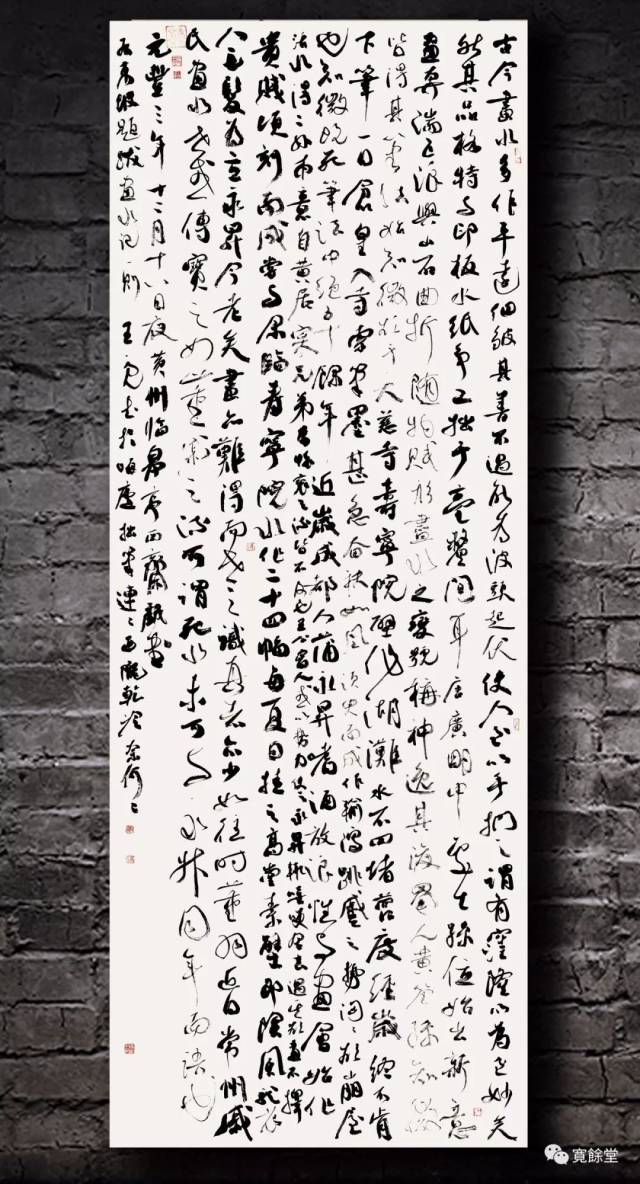 古今畫水多作平遠細皺其善不過能為波頭起伏使人至以手捫之謂有窪隆以為至妙矣
然其品格特與印板水紙爭工拙于毫釐間耳唐廣明中處士孫位始出新意
畫奔湍巨浪與山石曲折隨物賦形盡水之變號稱神逸其後蜀人黃筌孫知微
皆得其筆法始知微欲于大慈寺壽寧院壁作湖灘水石四堵營度經歲終不肯
下筆一日倉皇入寺索筆墨甚急奮袂如風須臾而成作輸瀉跳蹙之勢洶洶欲崩屋
也知微既死筆法中絕五十餘年近歲成都人蒲永昇嗜酒放浪性與畫會始作
活水得二孫本意自黃居寀兄弟李懷袞之流皆不及也王公富人或以勢力使之永昇輒嘻笑舍去遇其欲畫不擇
貴賤頃刻而成嘗與余臨壽寧院水作二十四幅每夏日挂之高堂素壁即陰風襲
人毛髮為立永昇今老矣畫亦難得而世之識真者亦少如往時董羽近日常州戚
氏畫水世或傳寶之如董戚之流可謂死水未可與永昇同年而語也
元豐三年十二月十八日夜黃州臨皋亭西齋戲書
右東坡題跋畫水記一則
寬餘堂